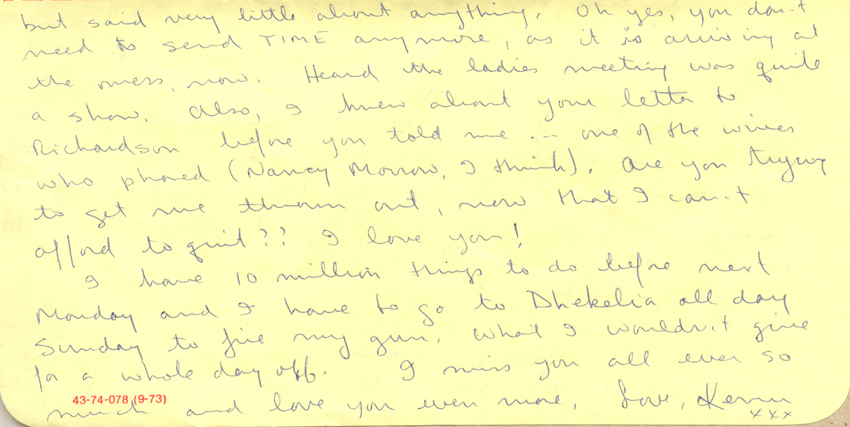 but said very little about anything. Oh yes, you don't
need to send TIME anymore, as it is arriving at
the mess, now. Heard the ladies meeting was quite
a show. Also, I knew about your letter to
Richardson before you told me ... one of the wives
who phoned (Nancy Morrow, I think). Are you trying
to get me thrown out, now that I can't
afford to quit?? I love you!
I have 10 million things to do before next
Monday and I have to go to Dhekelia all day
Sunday to fire my gun. What I wouldn't give
for a whole day off. I miss you all ever so
43-74-078 (9-73)
much and love you even more. Love, Kevin
xxx